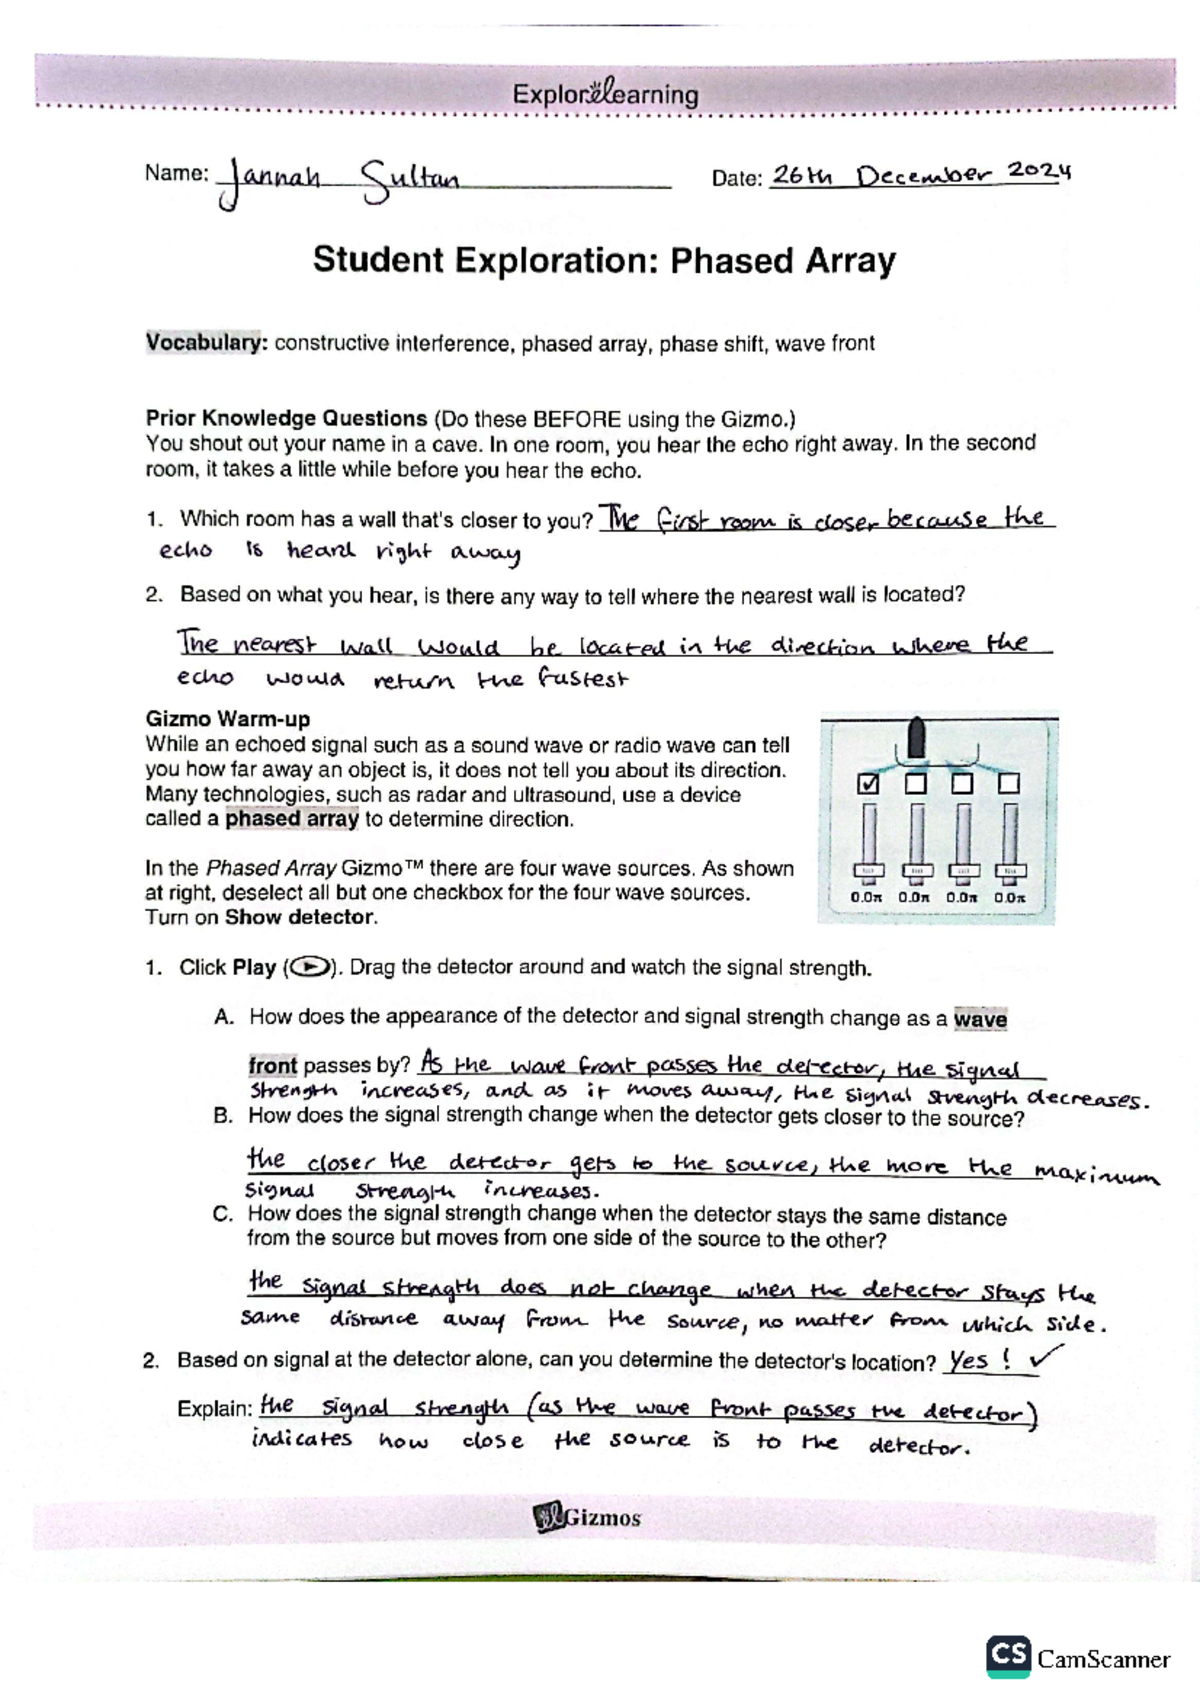 ExploreLearning
Name: Jannah Sultan Date: 26th December 2024
Student Exploration: Phased Array
Vocabulary: constructive interference, phased array, phase shift, wave front
Prior Knowledge Questions (Do these BEFORE using the Gizmo.)
You shout out your name in a cave. In one room, you hear the echo right away. In the second
room, it takes a little while before you hear the echo.
1. Which room has a wall that's closer to you? The first room is closer because the
echo is heard right away
2. Based on what you hear, is there any way to tell where the nearest wall is located?
The nearest wall would be located in the direction where the
echo would return the fastest
Gizmo Warm-up
While an echoed signal such as a sound wave or radio wave can tell
you how far away an object is, it does not tell you about its direction.
Many technologies, such as radar and ultrasound, use a device
called a phased array to determine direction.
In the Phased Array Gizmo™ there are four wave sources. As shown
at right, deselect all but one checkbox for the four wave sources.
Turn on Show detector.
0.0π 0.0π 0.0π 0.0π
1. Click Play ( ). Drag the detector around and watch the signal strength.
A. How does the appearance of the detector and signal strength change as a wave
front passes by? As the wave front passes the detector, the signal
strength increases, and as it moves away, the signal strength decreases.
B. How does the signal strength change when the detector gets closer to the source?
the closer the detector gets to the source, the more the maximum
signal strength increases.
C. How does the signal strength change when the detector stays the same distance
from the source but moves from one side of the source to the other?
the signal strength does not change when the detector stays the
same distance away from the source, no matter from which side.
2. Based on signal at the detector alone, can you determine the detector's location? Yes ! ✓
Explain: the signal strength (as the wave front passes the detector)
indicates how close the source is to the detector.
Gizmos
CS CamScanner